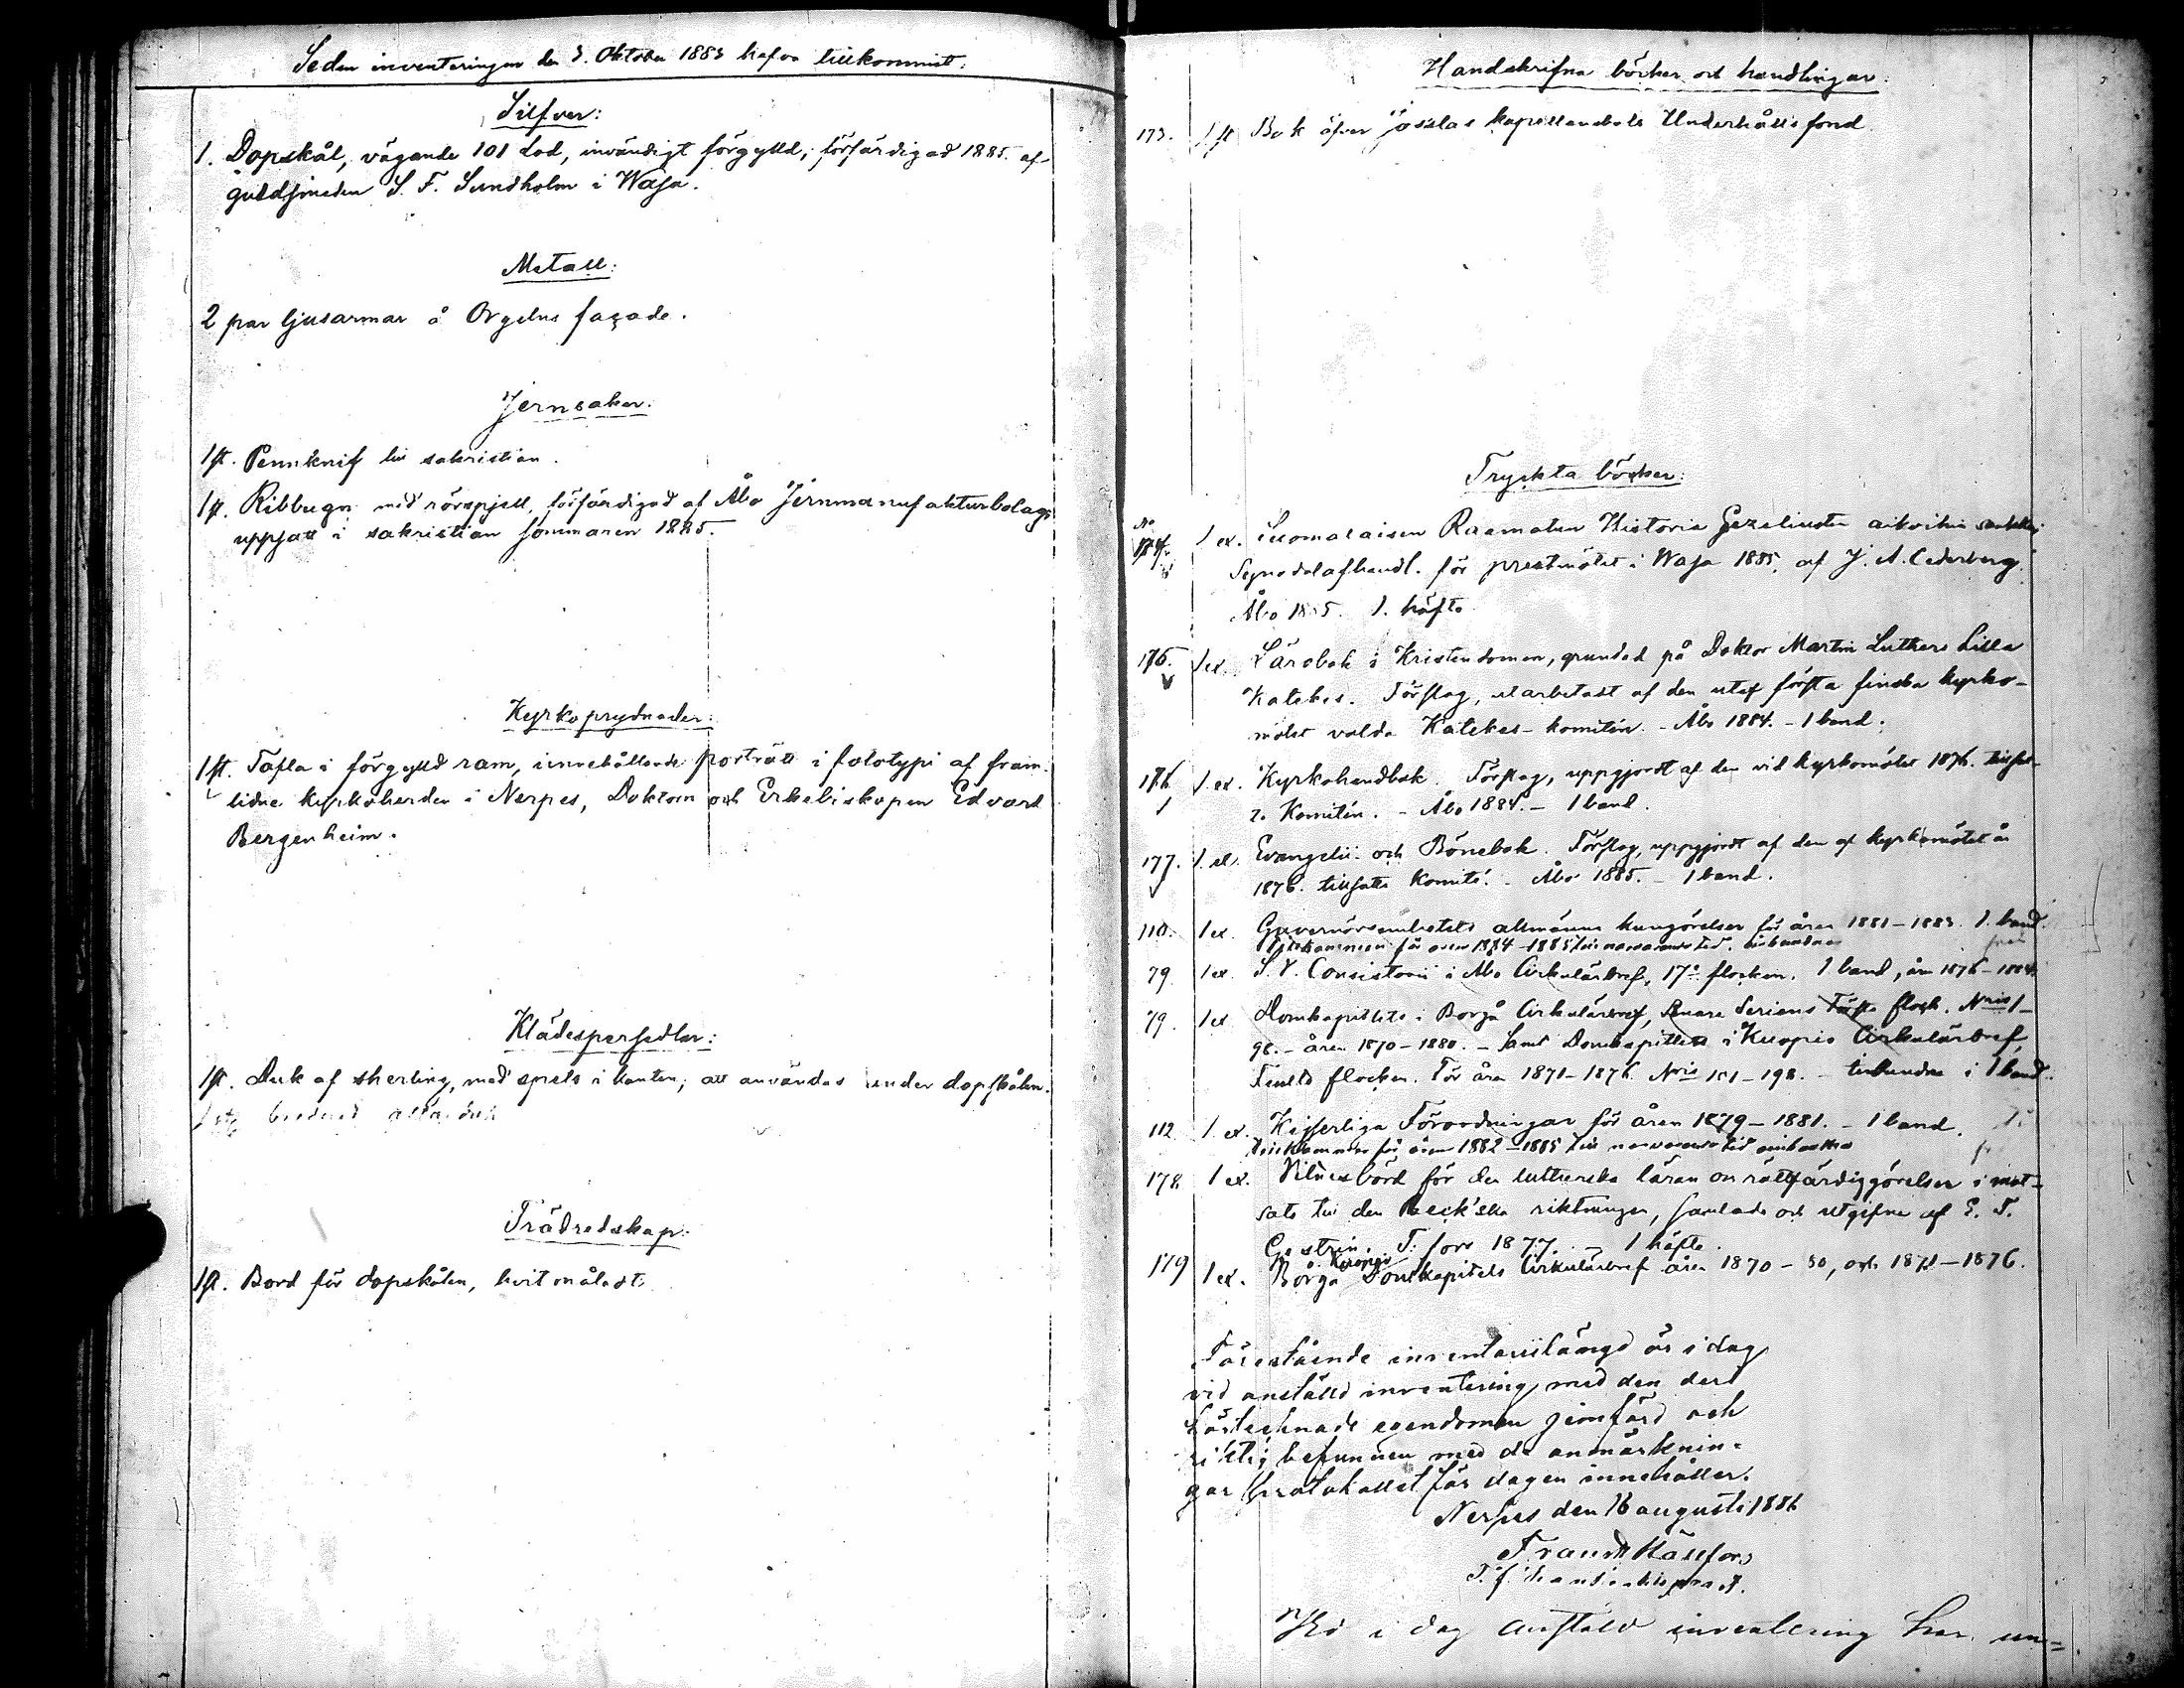 Sedan inventeringen den 3. Oktober 1883 hafva tillkommit:
Silfver:
1. Dopskål, vägande 101 lod, invändigt förgylld, förfärdigad 1885. af
guldsmeden S. F. Sundholm i Wasa.
Metall:
2 par ljusarmar å Orgelns façade.
Jernsaker:
1 st. Pennknif till sakristian.
1 st. Ribbugn med rörspjell, förfärdigad af Åbo Jernmanufakturbolag,
uppsatt i sakristian sommaren 1885.
Kyrkoprydnader:
1 st. Tafla i förgylld ram, innehållande porträtt i fototypi af fram-
lidne kyrkoherden i Nerpes, Doktorn och Erkebiskopen Edvard
Bergenheim.
Klädespersedlar:
1 st. Duk af sherting, med spets i kanten, att användas under dopskålen.
1 st. broderad altarduk
Trädredskap:
1 st. Bord för dopskålen, hvitmåladt.
Handskrifna böcker och handlingar:
173. 1 st Bok öfver kapellanebols Underhålls fond
Tryckta böcker:
No 174. 1 ex. Suomalaisen Raamatun Historia Gezeliusten aikoihin saakka
Synodalafhandl. för prestmötet i Wasa 1885, af J. A. Cederberg.
Åbo 1885. 1. häfte
175. 1 ex Lärobok i Kristendomen, grundad på Doktor Martin Luthers Lilla
Katekes. Förslag, utarbetadt af den utaf första finska kyrko-
mötet valda Katekes-komitén. - Åbo 1884. - 1 band.
176 1 ex. Kyrkohandbok. Förslag, uppgjordt af den vid kyrkomötet 1876. tillsat-
ta Komitén. - Åbo 1884. - 1 band.
177. 1 ex. Evangelii- och Bönebok. Förslag, uppgjordt af den af kyrkomötet år
1876. tillsatta Komité. - Åbo 1885. - 1 band.
110. 1 ex. Guvernörsembetets allmänna kungörelser för åren 1881-1883. 1. band.
Tillkommen för åren 1884-1885 till närvarande tid, inbundna
79. 1 ex. S. V. Consistorii i Åbo Cirkulärbref, 17e flocken. 1 band, åren 1876-1884.
79. 1 ex Domkapitlets i Borgå Cirkulärbref, Senare Seriens Första flock. Nris 1-
98. - åren 1870-1880. - Samt Domkapitlets i Kuopio Cirkulärbref
Femte flocken. För åren 1871-1876. Nris 101-198. - inbundna i 1 band.
112 1 ex. Kejserliga Förordningar för åren 1879-1881. - 1 band.
Tillkommer för åren 1882-1885 till närvarande tid oinbundna
178. 1 ex. Vitnesbörd för den lutherska läran om rättfärdiggörelsen i mot-
sats till den Beck'ska riktningen, samlade och utgifne af E. F.
Gestrin. T:fors 1877. - 1 häfte.
179 1 ex. Borgå o. Kuopio Domkapitels Cirkulärbref åren 1870-80, och 1871-1876.
Förestående inventariilängd är i dag
vid anställd inventering med den deri
förtecknade egendomen jemförd och
riktig befunnen med de anmärknin-
gar protokollet för dagen innehåller.
Nerpes den 16 augusti 1886
Frans Hällfors
T. f. kontraktsprost.
Vid i dag anstäld inventering har un=